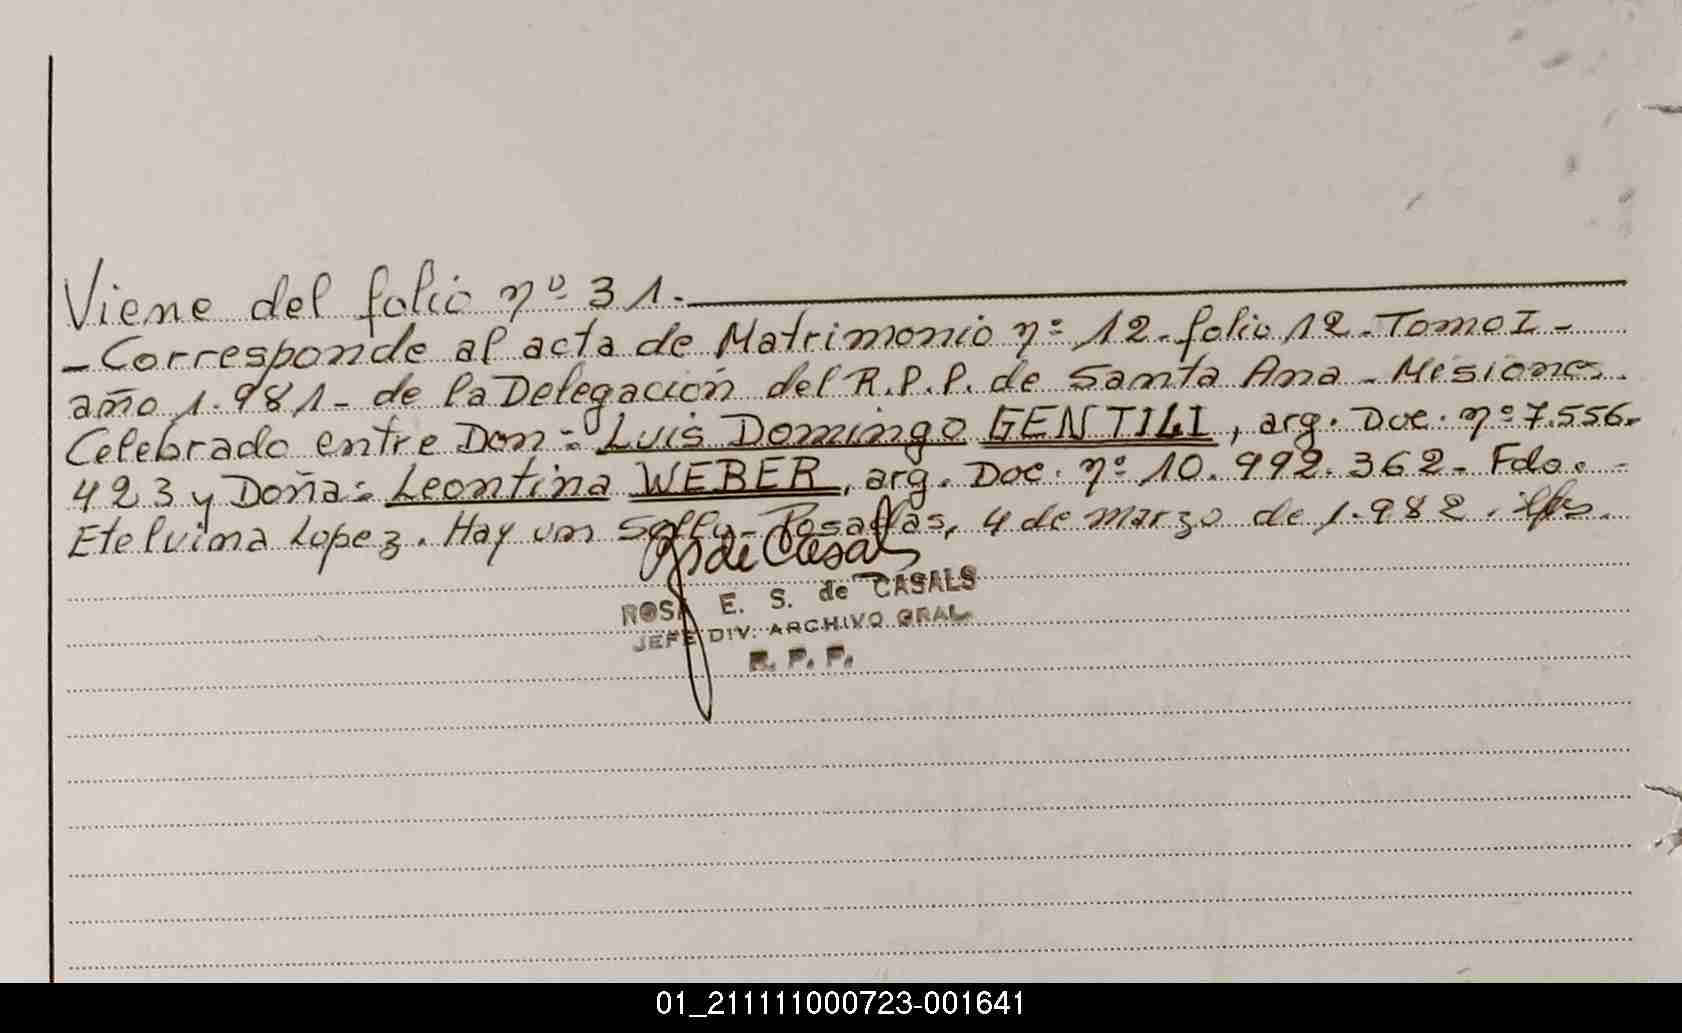 Viene del folio nº 31.
- Corresponde al acta de Matrimonio nº 12. folio 12. Tomo I -
año 1.981 - de la Delegación del R.P.P. de Santa Ana - Misiones.
Celebrado entre Don: Luis Domingo GENTILI, arg. Doc. nº 7.556.
423 y Doña: Leontina WEBER, arg. Doc. nº 10.992.362 - Fdo. -
Etelvina Lopez. Hay un Sello - Posadas, 4 de marzo de 1.982.
de Casals
ROSA E. S. de CASALS
JEFE DIV. ARCHIVO GRAL.
R. P. P.
01_211111000723-001641